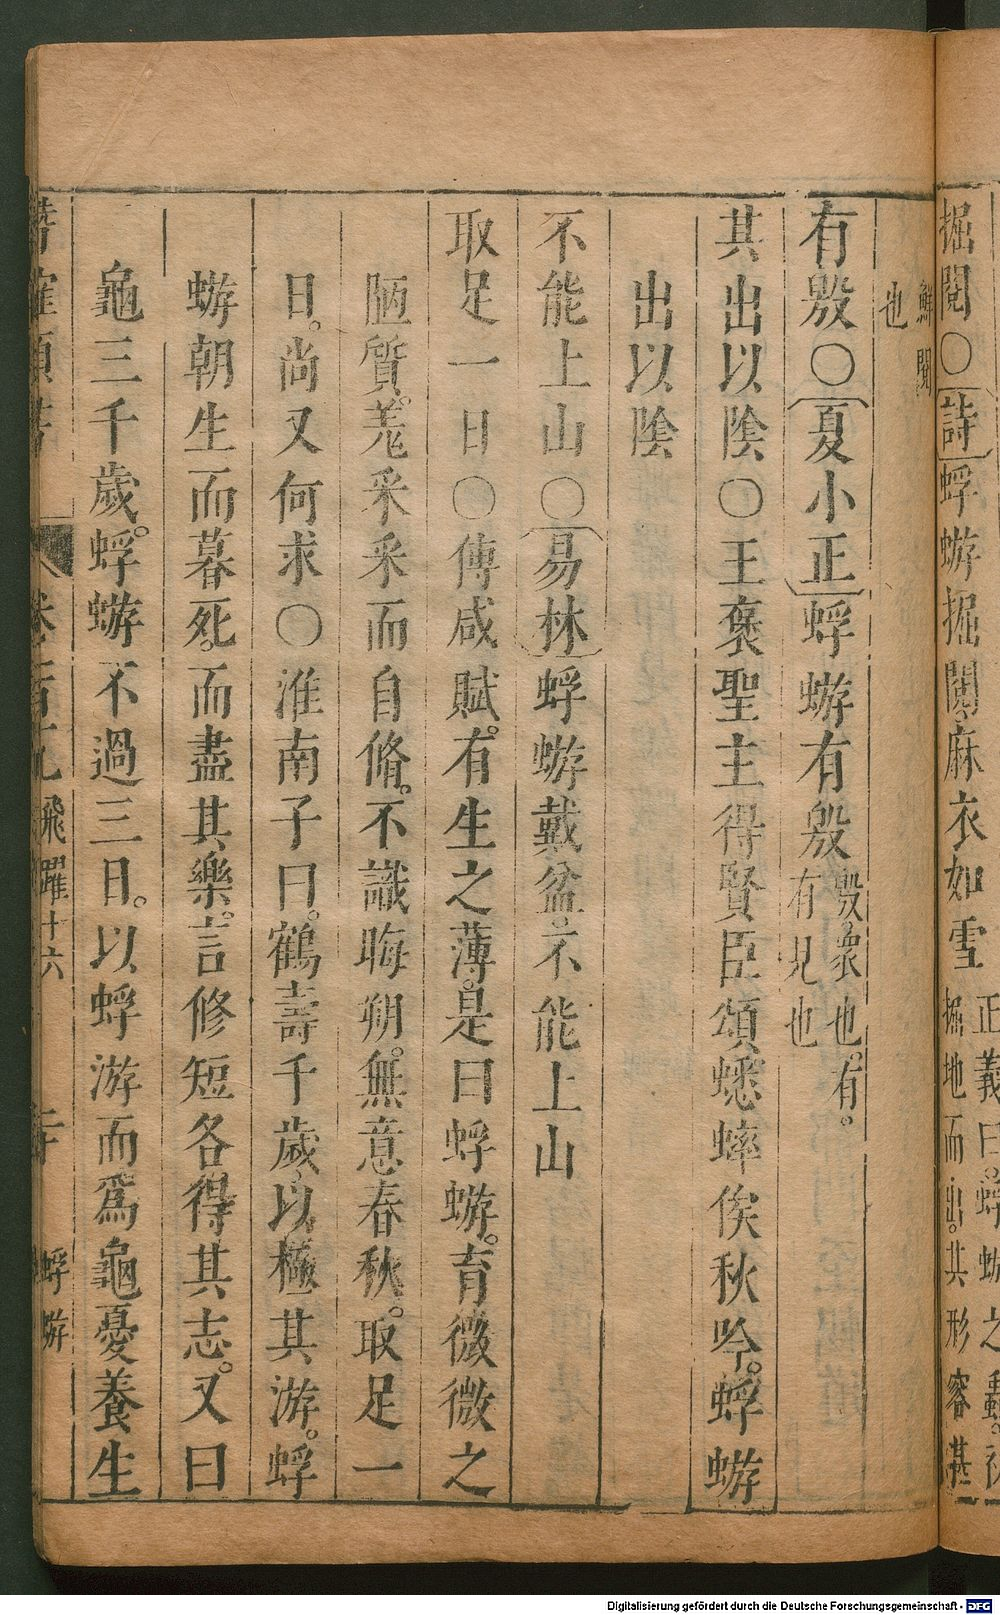 掘閱○詩蜉蝣掘閱麻衣如雪
正義曰蜉蝣之蟲
掘地而出其形容甚
鮮閱
也
有殷○夏小正蜉蝣有殷
殷衆也有
有見也
其出以陰○王褒聖主得賢臣頌蟋蟀俟秋吟蜉蝣
出以陰
不能上山○易林蜉蝣戴盆不能上山
取足一日○傳咸賦有生之薄是曰蜉蝣育微微之
陋質羌采采而自脩不識晦朔無意春秋取足一
日尚又何求○淮南子曰鶴壽千歲以極其游蜉
蝣朝生而暮死而盡其樂言修短各得其志又曰
龜三千歲蜉蝣不過三日以蜉游而爲龜憂養生
飛躍十六
蜉蝣
Digitalisierung gefördert durch die Deutsche Forschungsgemeinschaft - DFG